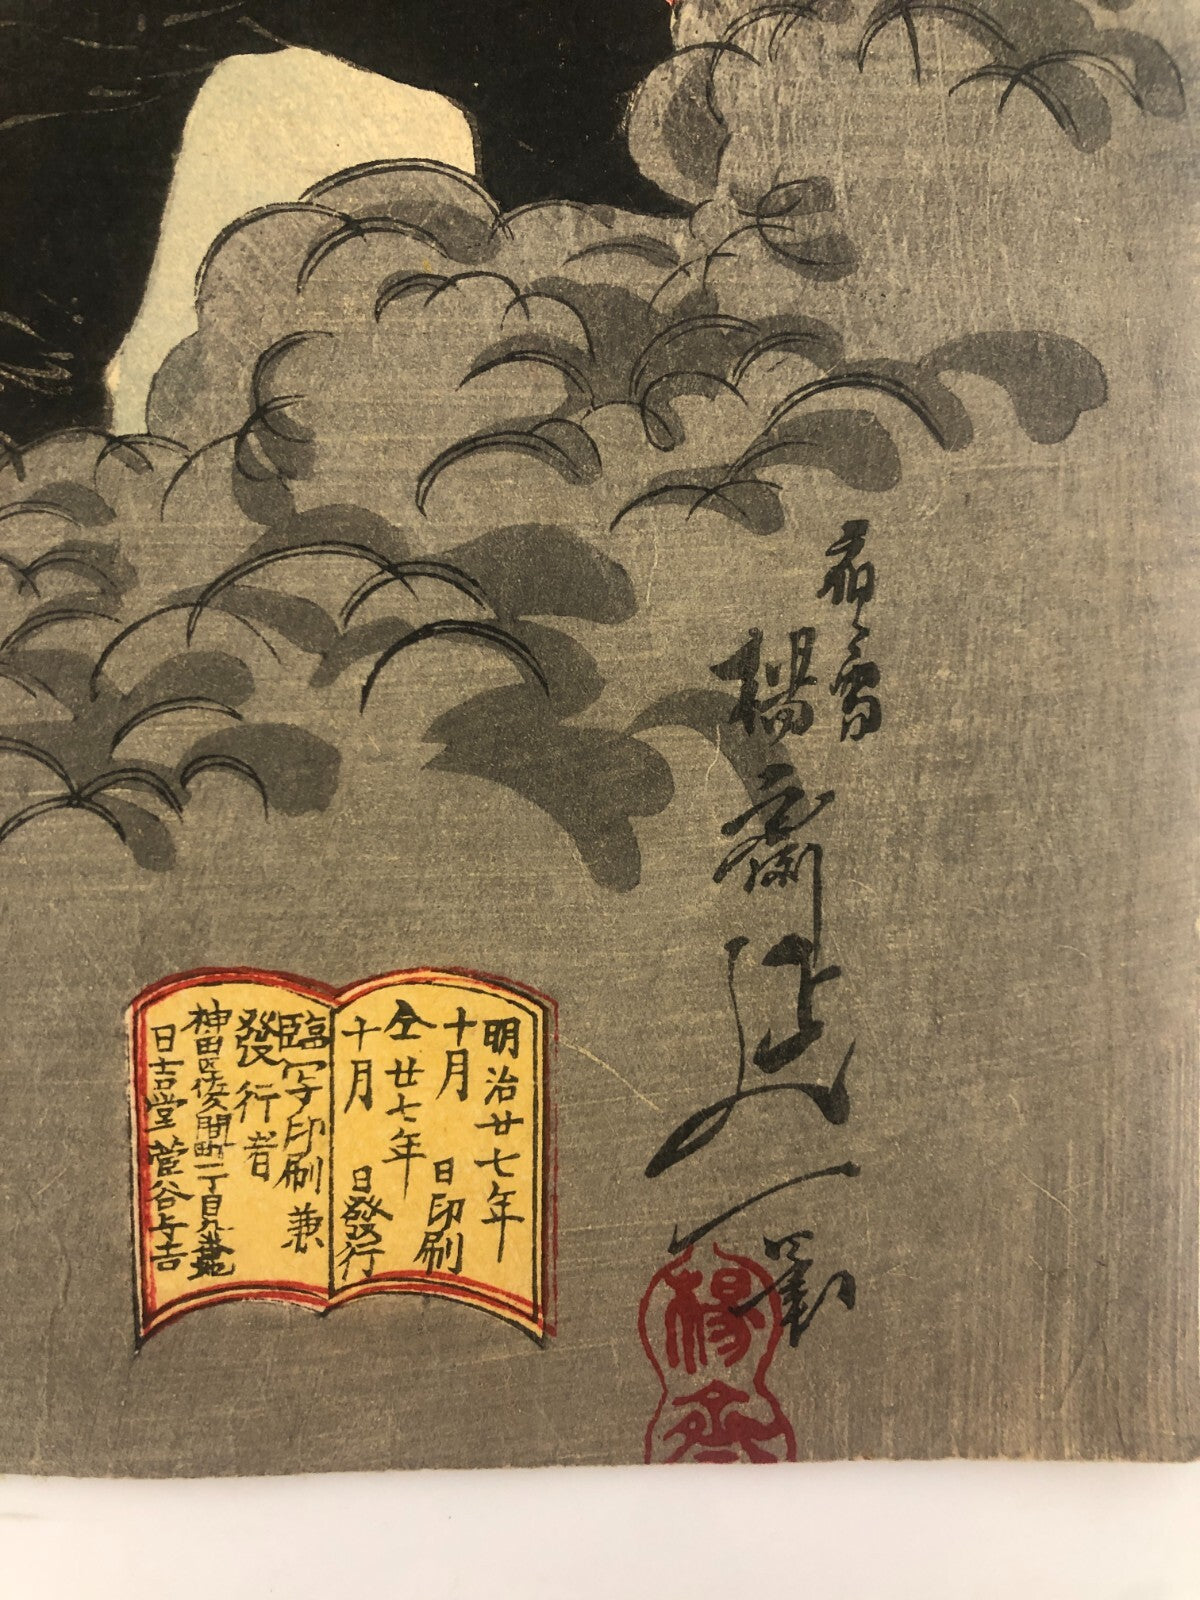 應需
楊斎延一筆
楊斎
明治廿七年
十月　日印刷
仝廿七年
十月　日發行
臨写印刷兼
發行者
神田区佐久間町一丁目九番地
日吉堂菅谷与吉